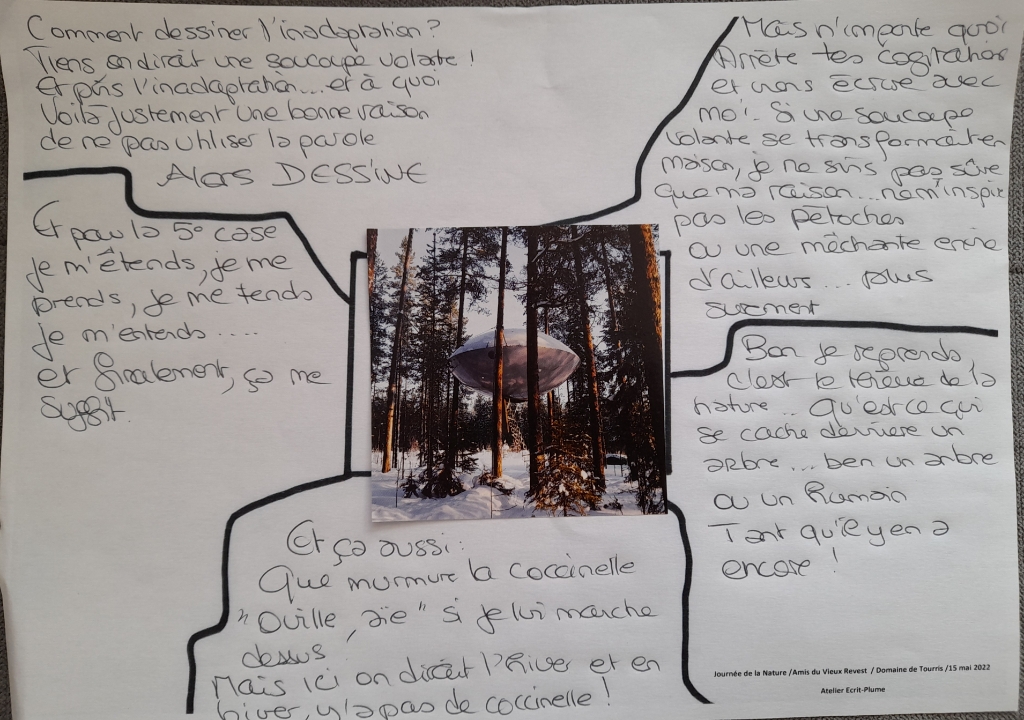 Comment dessiner l'inadaptation ?
Tiens on dirait une soucoupe volante !
Et puis l'inadaptation... et à quoi
Voilà justement une bonne raison
de ne pas utiliser la parole
Alors DESSINE
Mais n'importe quoi
Arrête tes cogitations
et viens écrire avec
moi. Si une soucoupe
volante se transformait en
maison, je ne suis pas sûre
que ma raison... n'em'inspire
pas les pétoches
ou une méchante envie
d'ailleurs... plus
surement
Bon je reprends,
c'est le thème de la
nature.. Qu'est ce qui
se cache derrière un
arbre... ben un arbre
ou un humain
Tant qu'il y en a
encore !
Et ça aussi :
Que murmure la coccinelle
"Ouille, aïe" si je lui marche
dessus
Mais ici on dirait l'hiver et en
hiver, y'a pas de coccinelle !
Et pour la 5e case
je m'étends, je me
prends, je me tends
je m'entends.....
et finalement, ça me
suffit.
Journée de la Nature /Amis du Vieux Revest / Domaine de Tourris /15 mai 2022
Atelier Ecrit-Plume